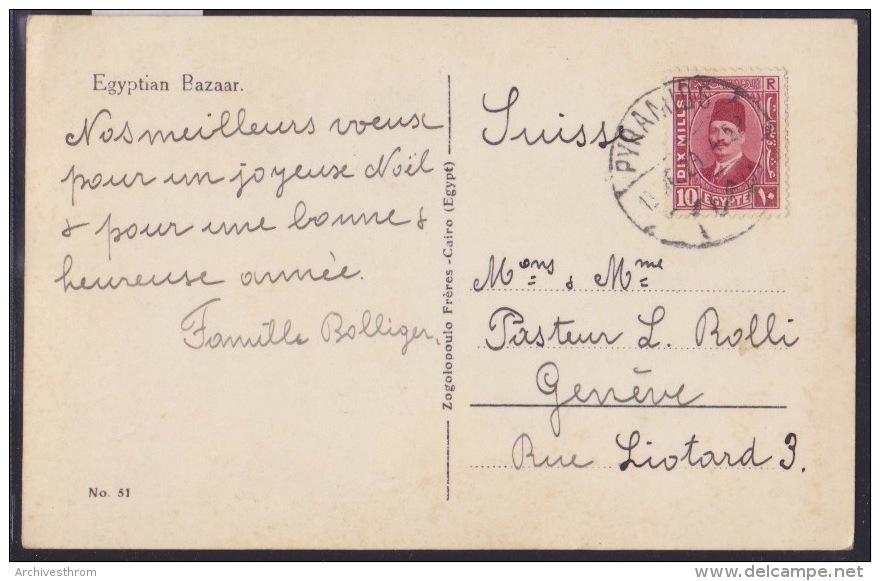 Egyptian Bazaar.
Nos meilleurs voeux
pour un joyeuse Noël
& pour une bonne &
heureuse année.
Famille Bolliger.
No. 51
Zogolopoulo Frères - Cairo (Egypt)
Suisse
PYRAMIDS
R
DIX MILLS
10 EGYPTE ١٠
Mons & Mme
Pasteur L. Rolli
Genève
Rue Liotard 3.
Archivesthrom
delcampe.net